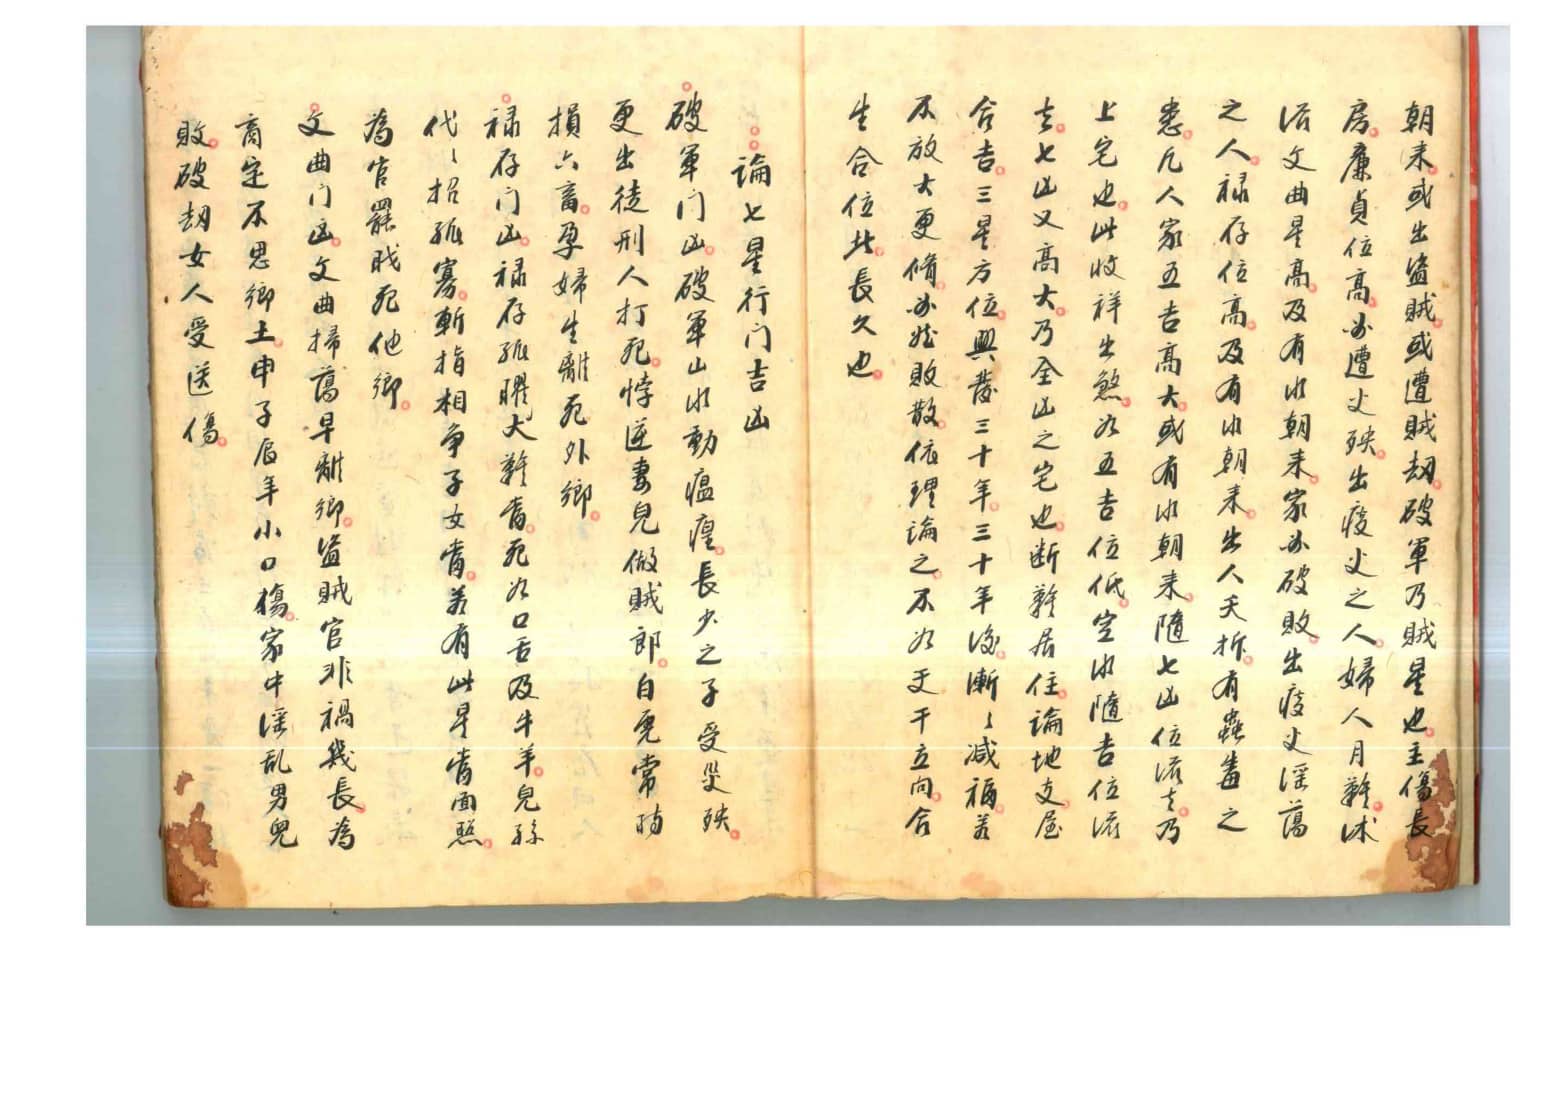 朝来。或出盜賊。或遭賊刼。破軍乃賊星也。主傷長
房。廉貞位高。必遭丈殃。出疫丈之人。婦人月難。沭
淫文曲星高。及有水朝来。家必破敗。出疫丈淫蕩
之人。禄存位高。及有水朝来。出人夭折。有蟲毒之
患。凡人家五吉高大。或有水朝来。隨七凶位流去。乃
上宅也。此收祥出煞。如五吉位低。空水隨吉位流
去。七凶又高大。乃全凶之宅也。断難居住。論地支屋
合吉。三星方位。興發三十年。三十年後。漸〻減福。若
不放大更脩。必然敗散。依理論之。不如天干立向。合
生合位此。長久也。
論七星行门吉凶
破軍门凶。破軍山水動瘟㾮。長少之子受災殃。
更出徒刑人打死。悖逆妻兒做賊郎。白虎常時
損六畜。孕婦生離死外鄉。
禄存门凶。禄存孤曜犬難當。死如口舌及牛羊。兒孫
代〻招孤寡。斬指相争子女當。若有此星當面照。
為官罷戝死他鄉。
文曲门凶。文曲掃蕩早離鄉。盜賊官非禍幾長。為
商定不思鄉土。申子辰年小口傷。家中淫乱男兒
敗。破刼女人受送傷。